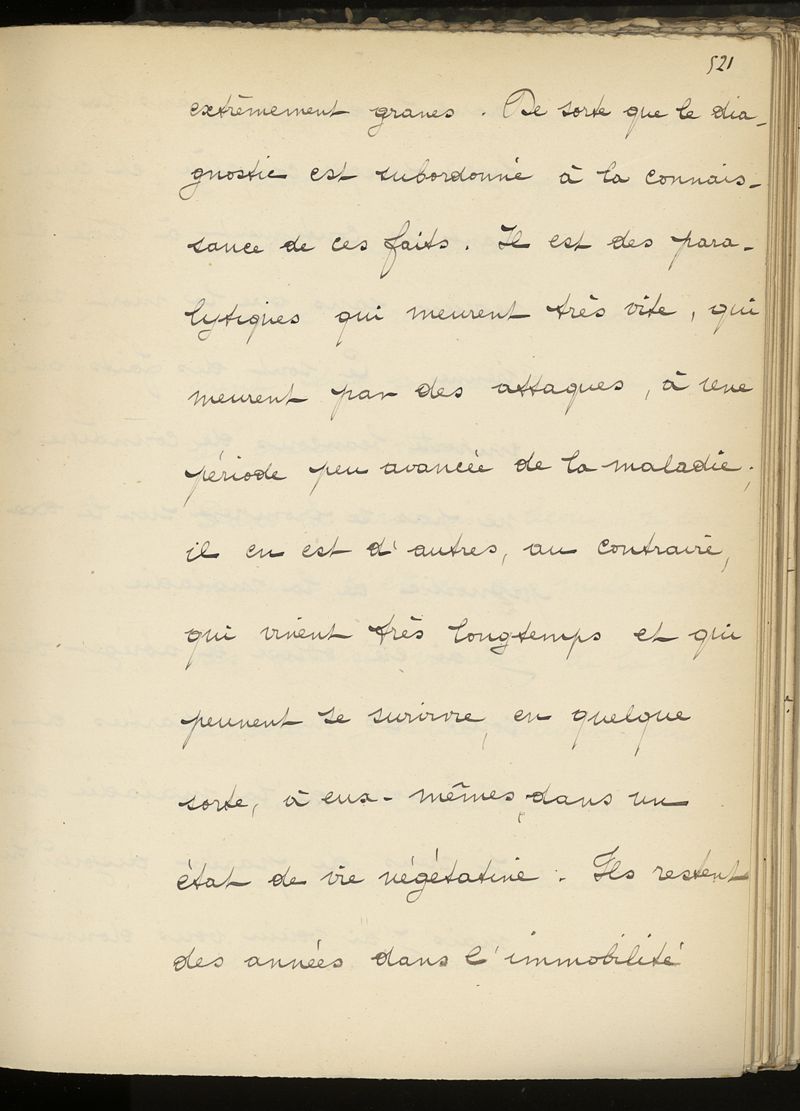 521
extrêmement graves. De sorte que le dia-
gnostic est subordonné à la connais-
sance de ces faits. Il est des para-
lytiques qui meurent très vite, qui
meurent par des attaques, à une
période peu avancée de la maladie;
il en est d'autres, au contraire,
qui vivent très longtemps et qui
peuvent se survivre, en quelque
sorte, à eux-mêmes, dans un
état de vie végétative. Ils restent
des années dans l'immobilité